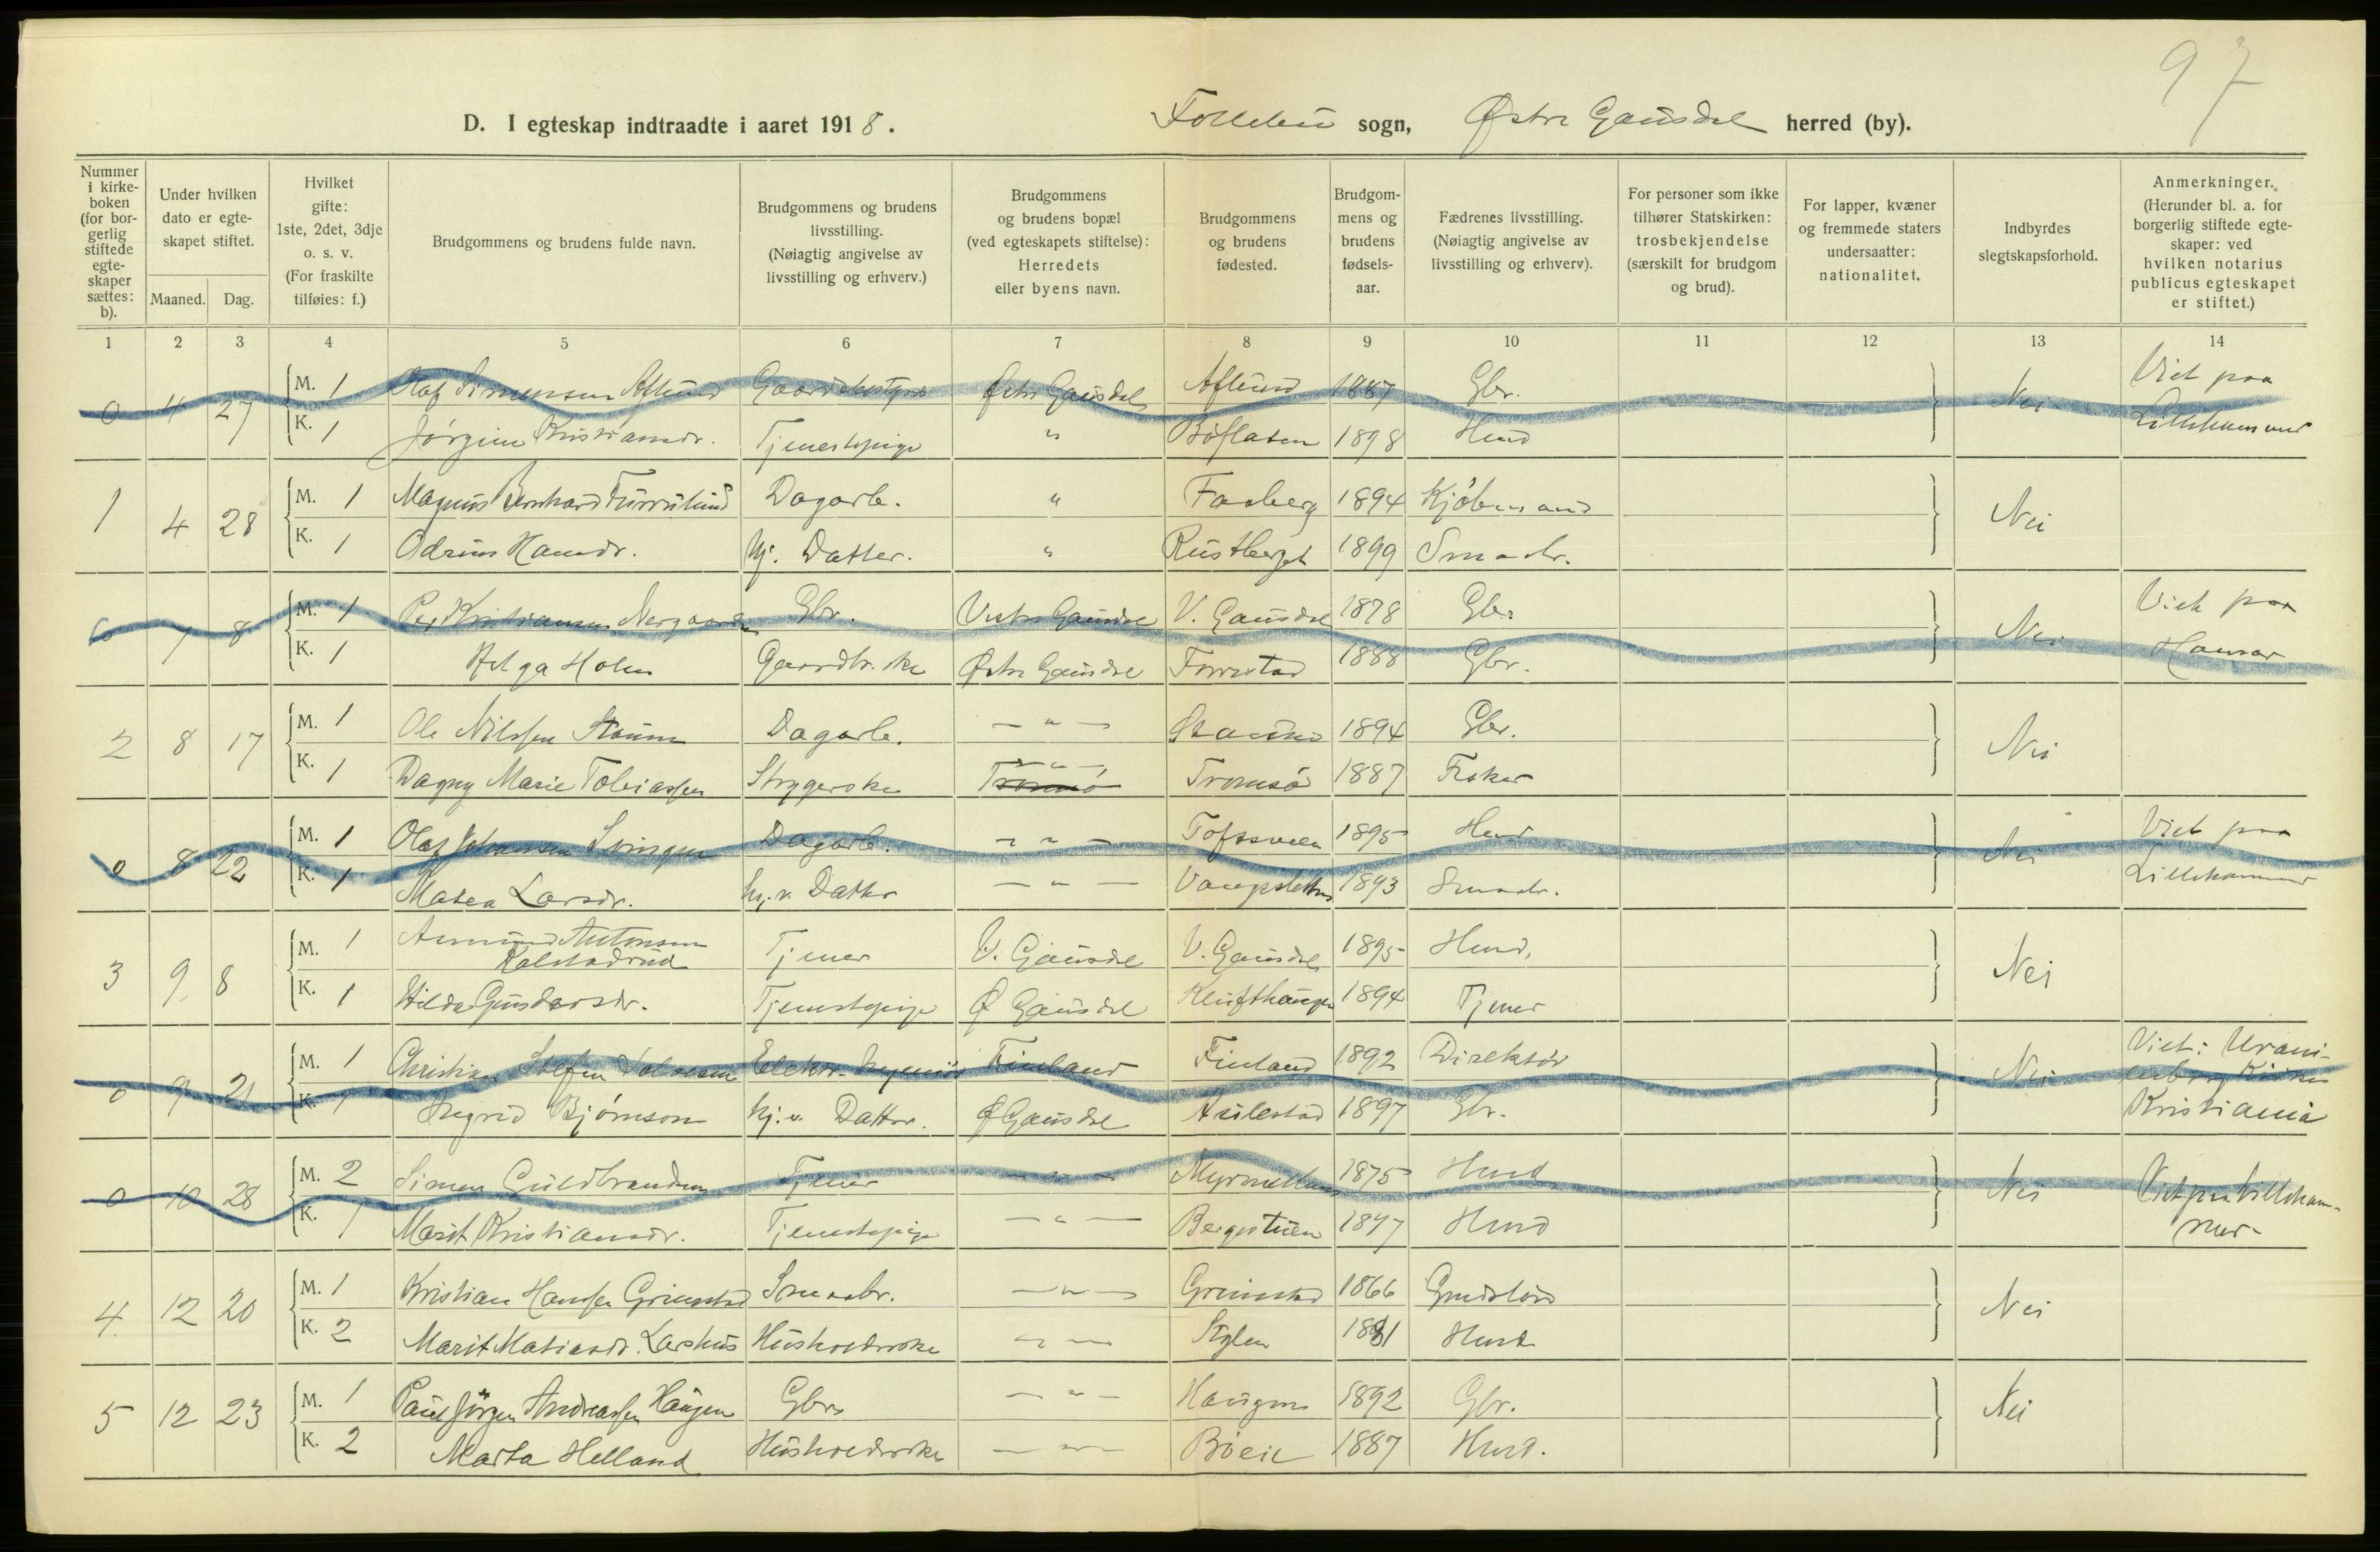 97
D. I egteskap indtraadte i aaret 1918. Follebu sogn, Østre Gausdal herred (by).
Nummer i kirkeboken (for borgerlig stiftede egteskaper sættes: b).
Under hvilken dato er egteskapet stiftet.
Maaned. Dag.
Hvilket gifte: 1ste, 2det, 3dje o. s. v. (For fraskilte tilføies: f.)
Brudgommens og brudens fulde navn.
Brudgommens og brudens livsstilling. (Nøiagtig angivelse av livsstilling og erhverv.)
Brudgommens og brudens bopæl (ved egteskapets stiftelse): Herredets eller byens navn.
Brudgommens og brudens fødested.
Brudgommens og brudens fødselsaar.
Fædrenes livsstilling. (Nøiagtig angivelse av livsstilling og erhverv).
For personer som ikke tilhører Statskirken: trosbekjendelse (særskilt for brudgom og brud).
For lapper, kvæner og fremmede staters undersaatter: nationalitet.
Indbyrdes slegtskapsforhold.
Anmerkninger. (Herunder bl. a. for borgerlig stiftede egteskaper: ved hvilken notarius publicus egteskapet er stiftet.)
1 2 3 4 5 6 7 8 9 10 11 12 13 14
0 4 27 M. 1 Olaf Simensen Aflund Østre Gausdal Aflund 1887 Gbr. Nei Viet paa
K. 1 Jørgine Kristiansdr. Tjenestepige " Böflaten 1898 Husd Lillehammer
1 4 28 M. 1 Magnus Bernhard Furrulund Dagarb. " Faaberg 1894 Kjøbmand Nei
K. 1 Odrun Hansdr. hj. Datter. " Rustberget 1899 Smaabr.
0 7 8 M. 1 Per Kristiansen Nergaarden Gbr. Vestre Gausdal V. Gausdal 1878 Gbr. Nei Viet paa
K. 1 Helga Holen Gaardbr.ske Østre Gausdal Forrestad 1888 Gbr. Hamar
2 8 17 M. 1 Ole Nilssen Dagarb. — " — 1894 Gbr. Nei
K. 1 Dagny Marie Tobiassen Strygerske — " — Tromsö Tromsö 1887 Fisker
0 8 22 M. 1 Olaf Johansen Svingen Dagarb. — " — Toftsveen 1895 Husd Nei Viet paa
K. 1 Matea Larsdr. hj.v. Datter — " — 1893 Smaabr. Lillehammer
3 9 8 M. 1 Amund Antonsen Kalstadrud Tjener V. Gausdal V. Gausdal 1895 Husd. Nei
K. 1 Hilda Gundersdr. Tjenestepige Ø Gausdal Klufthaugen 1894 Tjener
0 9 21 M. 1 Christian Stefen Elektr. Ingeniør Finland Finland 1892 Direktör Nei Viet: Urani-
K. 1 Ingrid Bjørnson hj.v. Datter. Ø Gausdal Aulestad 1897 Gbr. enborg Kirke Kristiania
0 10 28 M. 2 Simen Guldbrandsen Tjener — " — 1875 Husd Nei Viet paa Lilleham-
K. 1 Marit Kristiansdr. Tjenestepige — " — Bergstuen 1897 Husd mer
4. 12 20 M. 1 Kristian Hansen Grimstad Smaabr. — " — Grimstad 1866 Nei
K. 2 Marit Matiasdr. Larshus Husholderske — " — 1881 Husd
5 12 23 M. 1 Paul Jörgen Andreassen Haugen Gbr. — " — Haugen 1892 Gbr. Nei
K. 2 Marta Helland Husholderske — " — Böeie 1887 Husd.